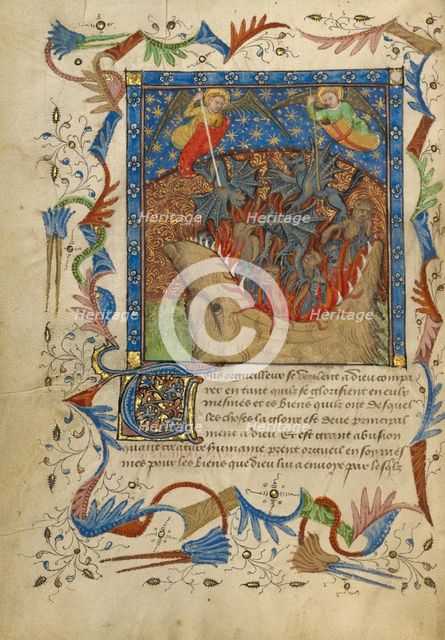 Heritage
Images
Heritage
Images
Heritage
Images
Heritage
Images
©
Tous orgueilleux se veulent a dieu compa
rer en tant quilz se glorifient en eulx
mesmes et es biens quilz ont des quel
les choses la gloire est deue principal
ment a dieu Et est grant abusion
quant creature humaine prent orgueil en soy mes
mes pour les biens que dieu lui a envoye par